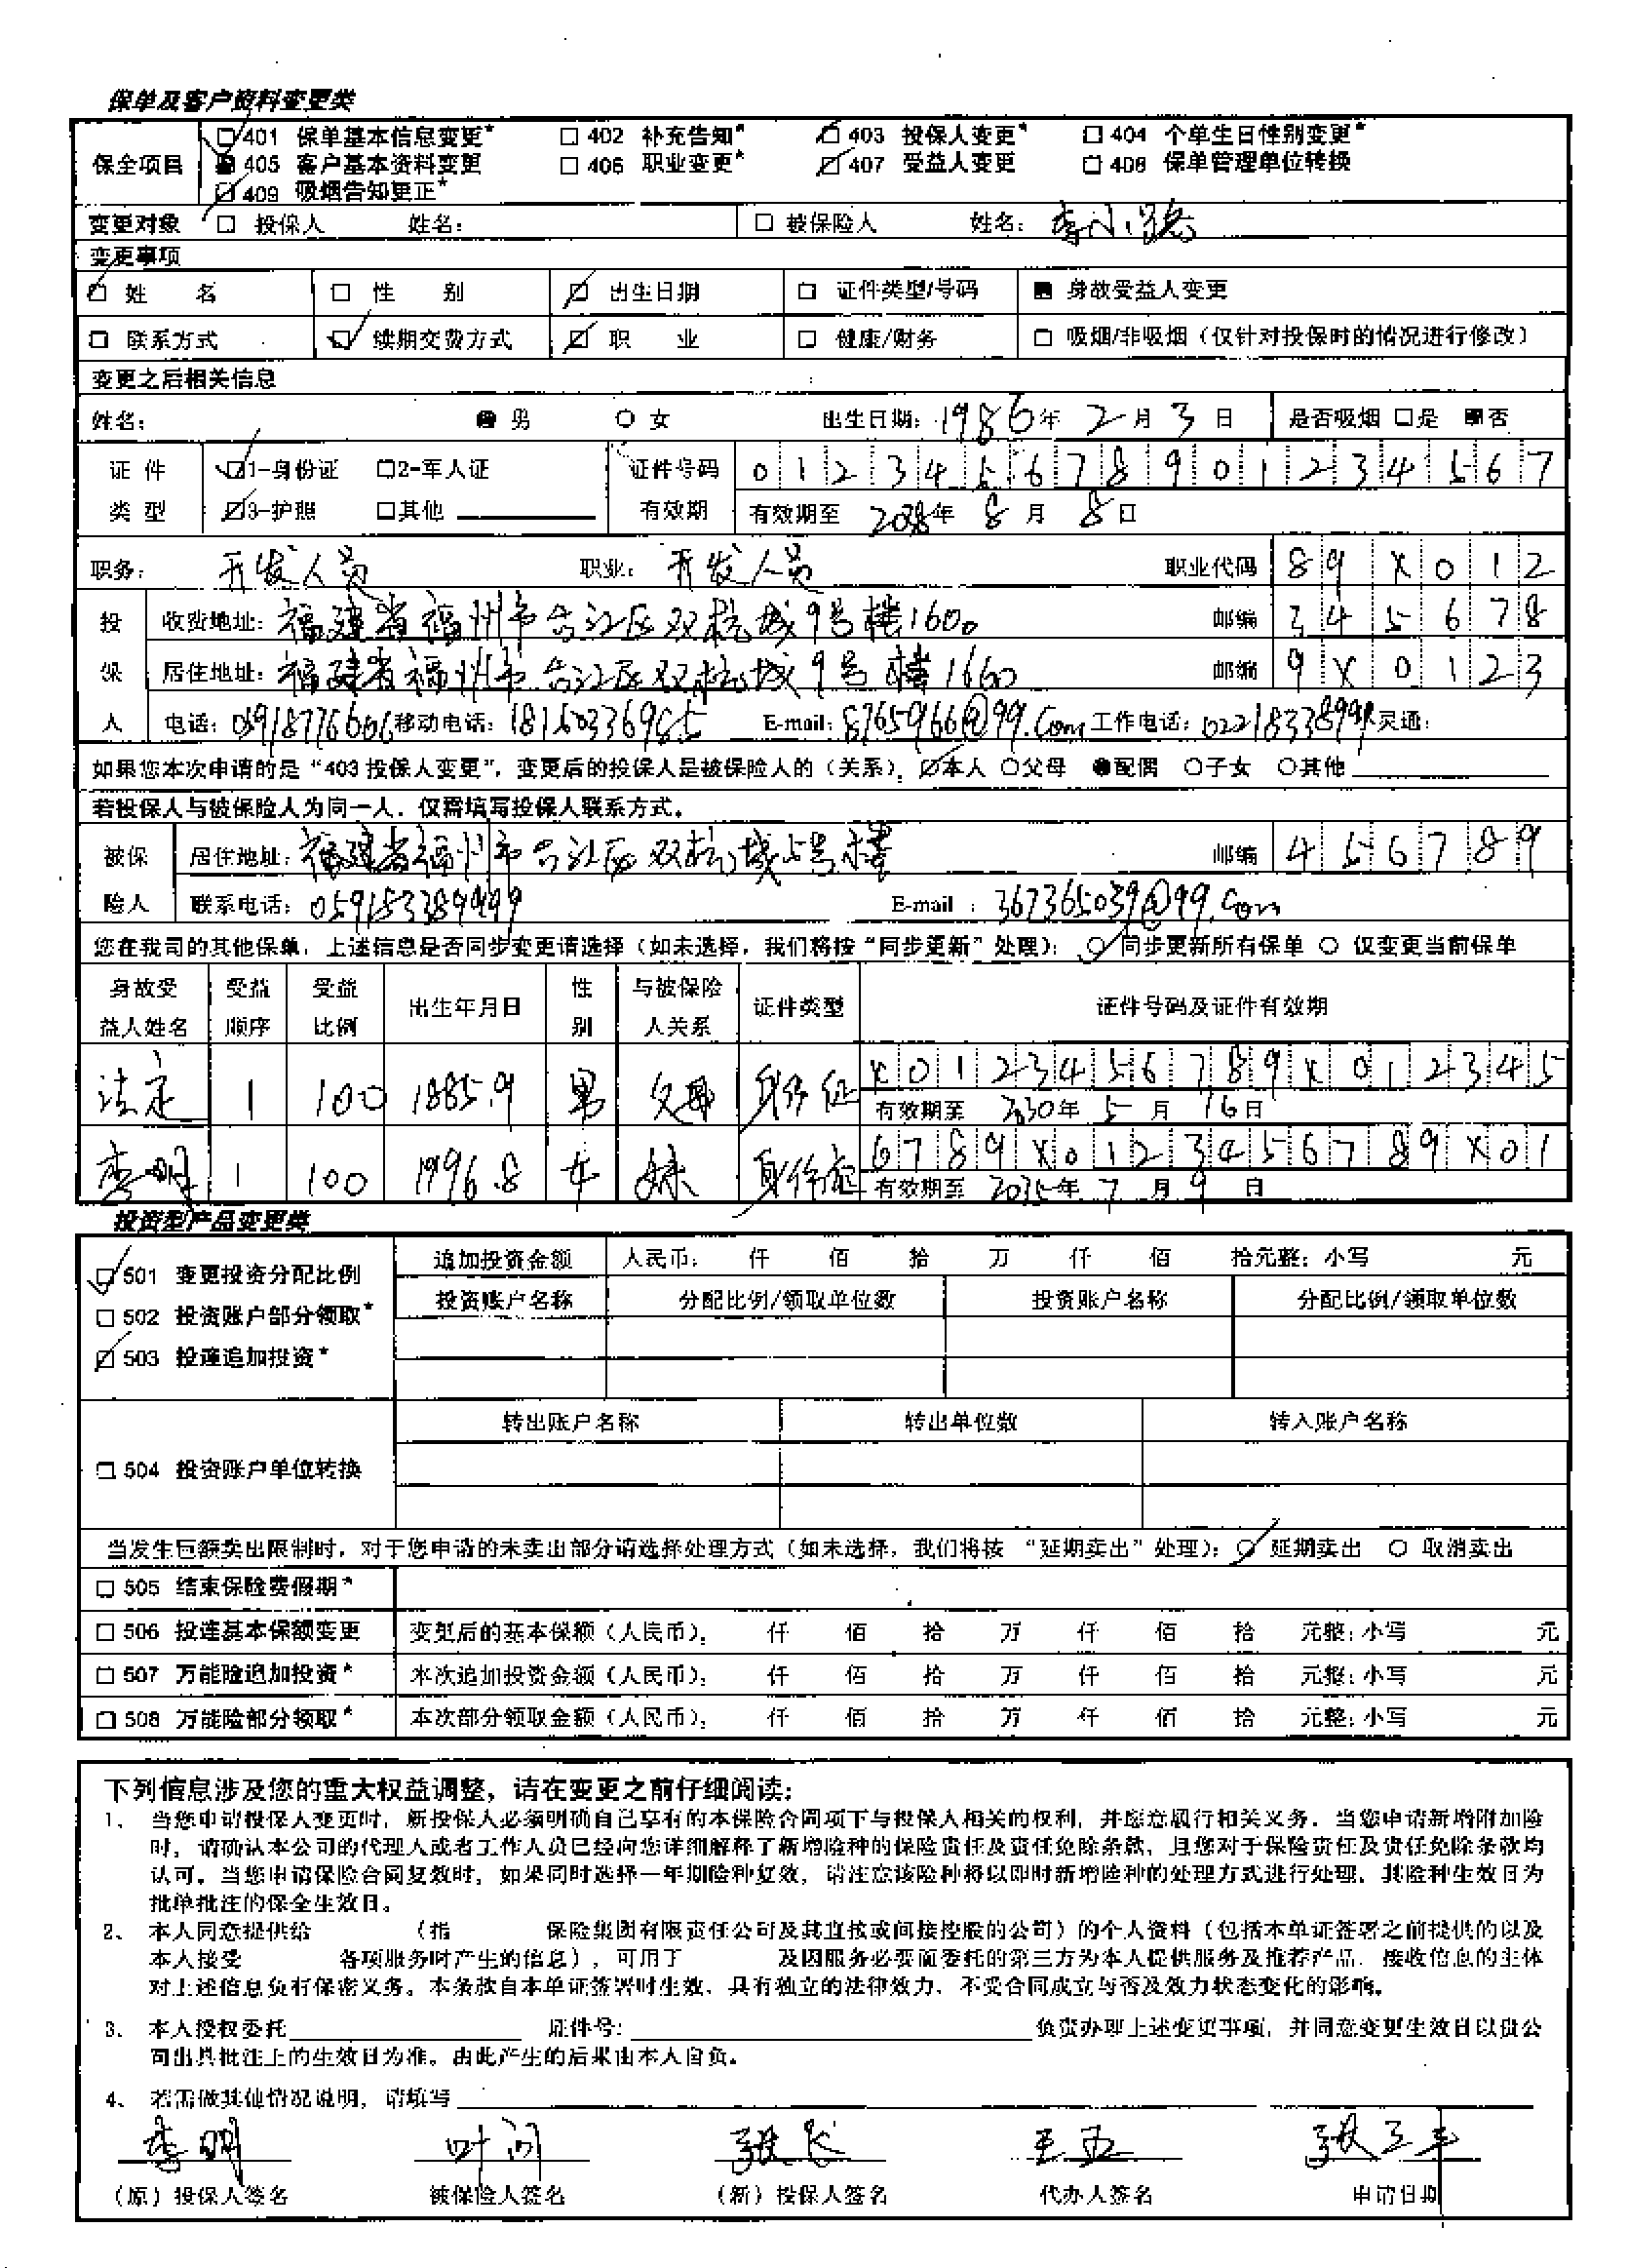 保单及客户资料变更类
保全项目 401 保单基本信息变更* 402 补充告知* 403 投保人变更* 404 个单生日性别变更*
405 客户基本资料变更 406 职业变更* 407 受益人变更 408 保单管理单位转换
409 吸烟告知更正*
变更对象 投保人 姓名: 被保险人 姓名: 李小璐
变更事项
姓 名 性 别 出生日期 证件类型/号码 身故受益人变更
联系方式 续期交费方式 职 业 健康/财务 吸烟/非吸烟(仅针对投保时的情况进行修改)
变更之后相关信息
姓名: 男 女 出生日期: 1986年 2月 3日 是否吸烟 是 否
证件 1-身份证 2-军人证 证件号码 012345678901234567
类型 3-护照 其他 有效期 有效期至 2038年 8月 8日
职务: 开发人员 职业: 开发人员 职业代码 89X012
投 收费地址: 福建省福州市台江区双杭城9号楼1600 邮编 345678
保 居住地址: 福建省福州市台江区双杭城9号楼1660 邮编 9X0123
人 电话: 05918776606 移动电话: 18160336985 E-mail: 8765966@99.com 工作电话: 灵通:
如果您本次申请的是“403投保人变更”,变更后的投保人是被保险人的(关系): 本人 父母 配偶 子女 其他
若投保人与被保险人为同一人,仅需填写投保人联系方式。
被保 居住地址: 福建省福州市台江区双杭城5号楼 邮编 456789
险人 联系电话: 059183389999 E-mail : 367365039@99.com
您在我司的其他保单,上述信息是否同步变更请选择(如未选择,我们将按“同步更新”处理): 同步更新所有保单 仅变更当前保单
身故受益人姓名 受益顺序 受益比例 出生年月日 性别 与被保险人关系 证件类型 证件号码及证件有效期
法定 1 100 1885.9 男 父母 身份证 X0123456789X012345
有效期至 2030年 5月 16日
李明 1 100 1996.8 女 妹 身份证 6789X0123456789X01
有效期至 2035年 7月 9日
投资型产品变更类
501 变更投资分配比例 追加投资金额 人民币: 仟 佰 拾 万 仟 佰 拾元整;小写 元
502 投资账户部分领取* 投资账户名称 分配比例/领取单位数 投资账户名称 分配比例/领取单位数
503 投连追加投资*
转出账户名称 转出单位数 转入账户名称
504 投资账户单位转换
当发生巨额卖出限制时,对于您申请的未卖出部分请选择处理方式(如未选择,我们将按 “延期卖出”处理): 延期卖出 取消卖出
505 结束保险费假期*
506 投连基本保额变更 变更后的基本保额(人民币): 仟 佰 拾 万 仟 佰 拾 元整;小写 元
507 万能险追加投资* 本次追加投资金额(人民币): 仟 佰 拾 万 仟 佰 拾 元整;小写 元
508 万能险部分领取* 本次部分领取金额(人民币): 仟 佰 拾 万 仟 佰 拾 元整;小写 元
下列信息涉及您的重大权益调整,请在变更之前仔细阅读:
1、 当您申请投保人变更时,新投保人必须明确自己享有的本保险合同项下与投保人相关的权利,并愿意履行相关义务。当您申请新增附加险
时,请确认本公司的代理人或者工作人员已经向您详细解释了新增险种的保险责任及责任免除条款,且您对于保险责任及责任免除条款均
认可。当您申请保险合同复效时,如果同时选择一年期险种复效,请注意该险种将以即时新增险种的处理方式进行处理,其险种生效日为
批单批注的保全生效日。
2、 本人同意提供给 (指 保险集团有限责任公司及其直接或间接控股的公司)的个人资料(包括本单证签署之前提供的以及
本人接受 各项服务时产生的信息),可用于 及因服务必要而委托的第三方为本人提供服务及推荐产品,接收信息的主体
对上述信息负有保密义务。本条款自本单证签署时生效,具有独立的法律效力,不受合同成立与否及效力状态变化的影响。
3、 本人授权委托 证件号: 负责办理上述变更事项,并同意变更生效日以贵公
司出具批注上的生效日为准。由此产生的后果由本人自负。
4、 若需做其他情况说明,请填写
李明 叶问 张长 王五 张三丰
(原)投保人签名 被保险人签名 (新)投保人签名 代办人签名 申请日期